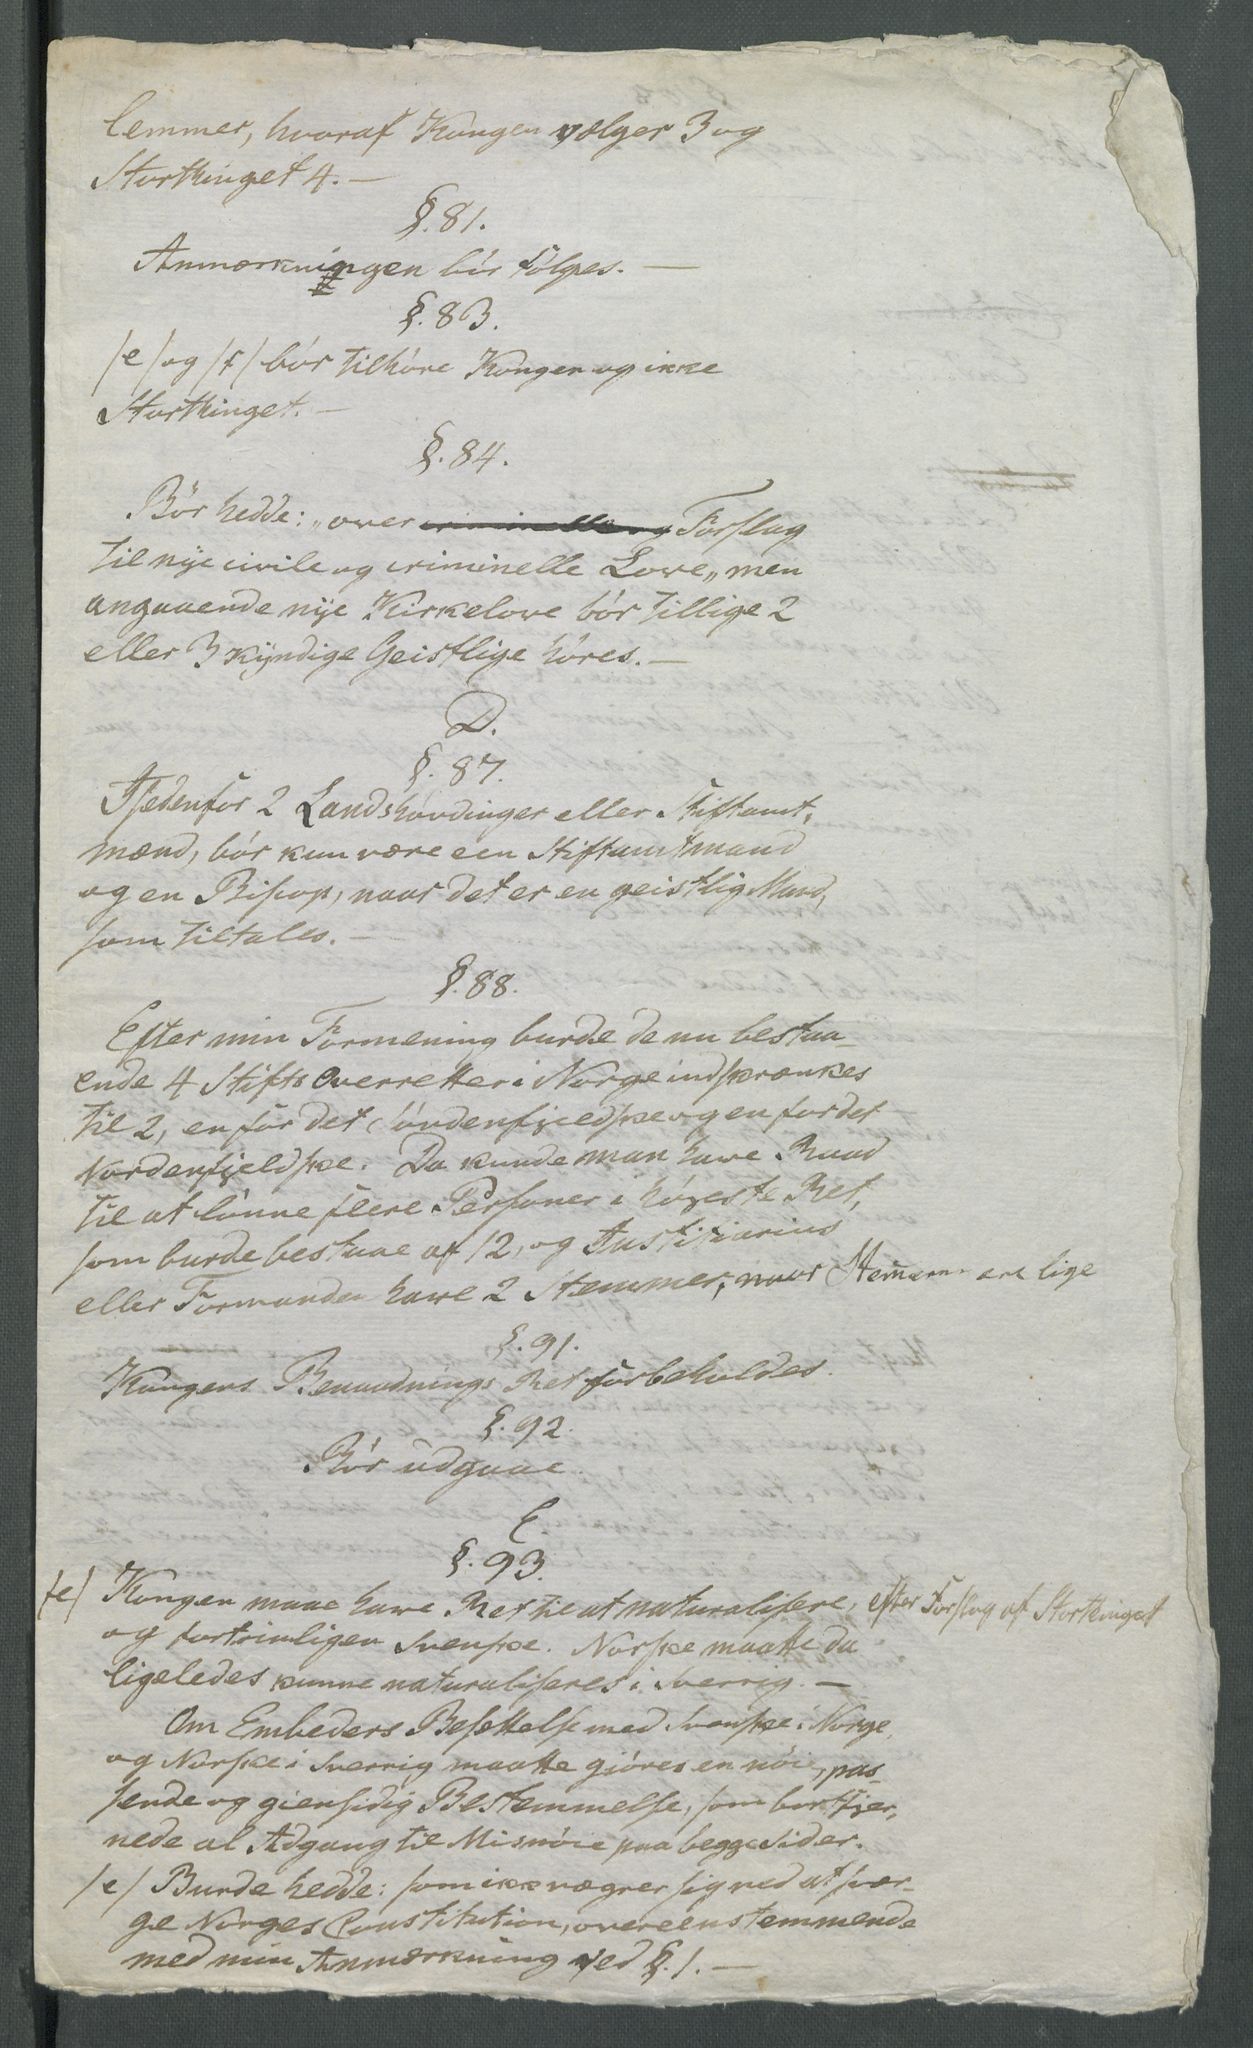 lemmer, hvoraf Kongen vælger 3 og
Storthinget 4. —
§. 81.
Anmærkningen bör fölges. —
§. 83.
/e/ og /f/ bör tilhöre Kongen og ikke
Storthinget. —
§. 84.
Bör hedde: „over criminelle og Forslag
til nye civile og criminelle Love„ men
angaaende nye Kirkelove bör tillige 2
eller 3 kyndige Geistlige höres. —
D.
§. 87.
Istedenfor 2 Landshövdinger eller Stiftamt,
mænd, bör kun være een Stiftamtmand
og en Biscop, naar det er en geistlig Mand,
som tiltales. —
§. 88.
Efter min Formening burde de nu bestaa-
ende 4 Stifts Overretter i Norge indskrænkes
til 2, en for det Söndenfjeldske og en for det
Nordenfjeldske. Da kunde man have Raad
til at lönne flere Personer i höieste Ret,
som burde bestaae af 12, og Justitiarius
eller Formanden have 2 Stemmer, naar Stemerne ere lige
§. 91.
Kongens Benaadnings Ret forbeholdes.
§. 92.
Bör udgaae.
E.
§. 93.
/e/ Kongen maae have Ret til at naturalisere, efter Forslag af Storthinget
og fortrinligen Svenske. Norske maatte da
ligeledes kunne naturaliseres i Sverrig. —
Om Embeders Besættelse med Svenske i Norge,
og Norske i Sverrig maatte giöres en nöie, pas-
sende og giensidig Bestemmelse, som bortfjer,
nede al Adgang til Misnöie paa begge Sider.
/e/ Burde hedde: som ikke vægrer sig ved at svær-
ge Norges Constitution, overeenstemmende
med min Anmærkning ved §. 1. —